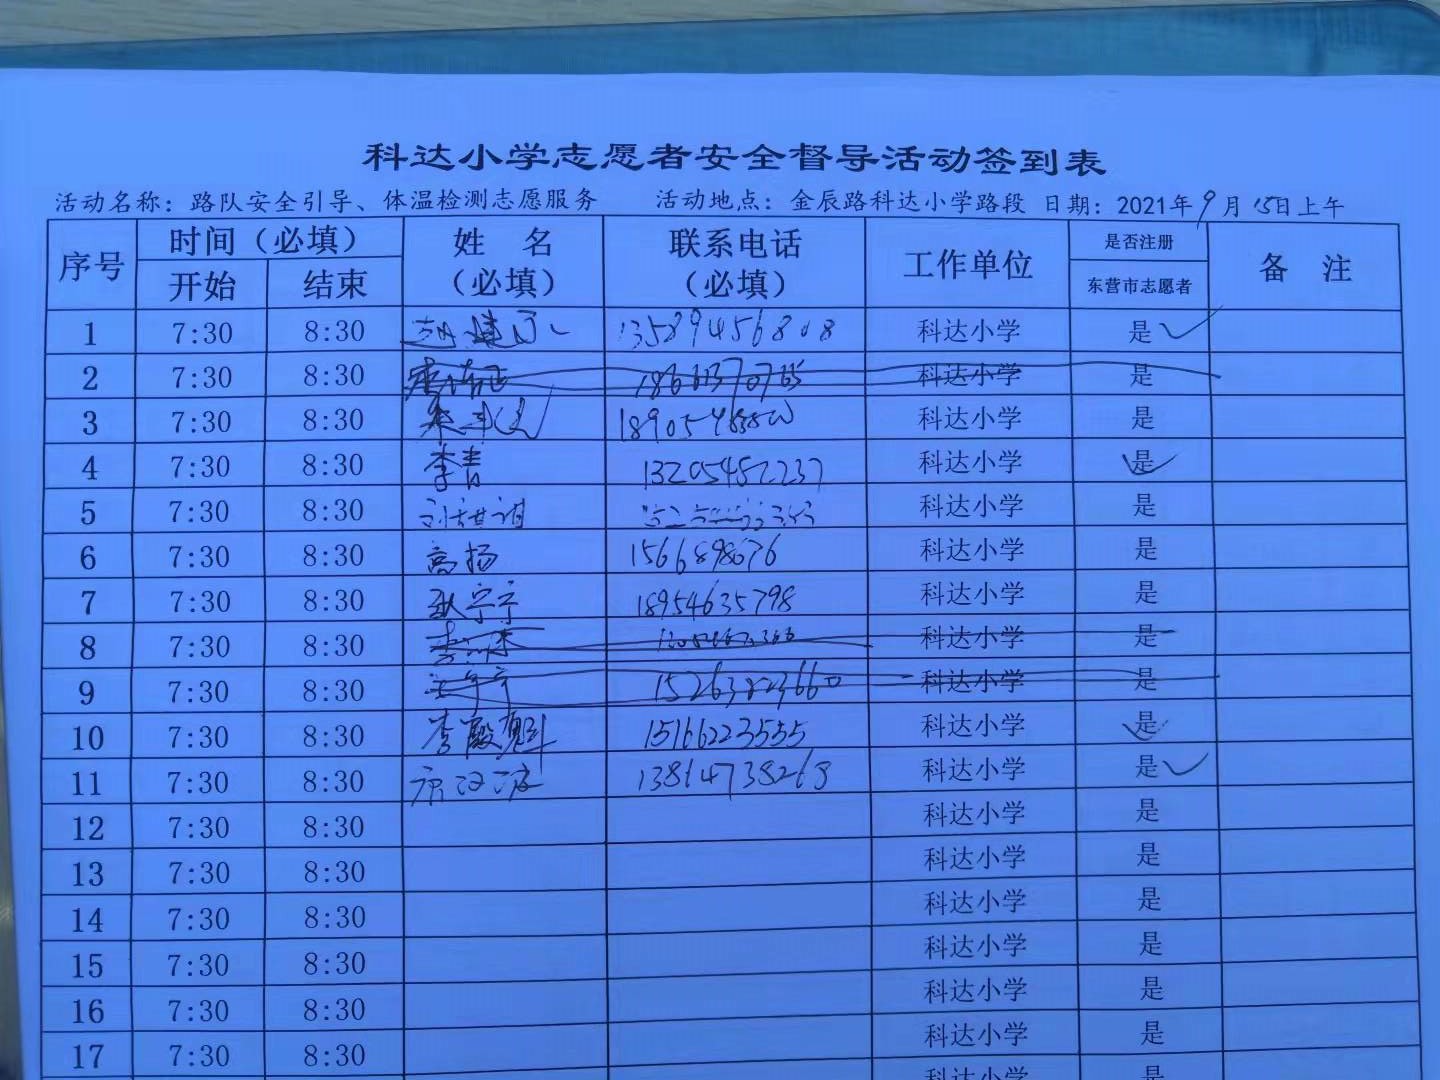 科达小学志愿者安全督导活动签到表
活动名称：路队安全引导、体温检测志愿服务 活动地点：金辰路科达小学路段 日期：2021年9月15日上午
序号 时间（必填） 姓 名（必填） 联系电话（必填） 工作单位 是否注册 备 注
开始 结束 东营市志愿者
1 7:30 8:30 13589456808 科达小学 是
2 7:30 8:30 科达小学 是
3 7:30 8:30 科达小学 是
4 7:30 8:30 李青 13205452237 科达小学 是
5 7:30 8:30 科达小学 是
6 7:30 8:30 高扬 科达小学 是
7 7:30 8:30 耿宁宁 18954635798 科达小学 是
8 7:30 8:30 科达小学 是
9 7:30 8:30 科达小学 是
10 7:30 8:30 李殿魁 15166223555 科达小学 是
11 7:30 8:30 13864738263 科达小学 是
12 7:30 8:30 科达小学 是
13 7:30 8:30 科达小学 是
14 7:30 8:30 科达小学 是
15 7:30 8:30 科达小学 是
16 7:30 8:30 科达小学 是
17 7:30 8:30 科达小学 是
科达小学 是